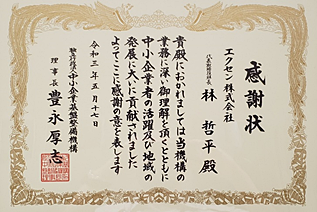 感謝状
エクセン株式会社
代表取締役社長
林 哲平 殿
貴殿におかれましては当機構の
業務に深い御理解を頂くとともに
中小企業者の活躍及び地域の
発展に大いに貢献されました
よってここに感謝の意を表します
令和三年五月十七日
独立行政法人中小企業基盤整備機構
理事長 豊永厚志